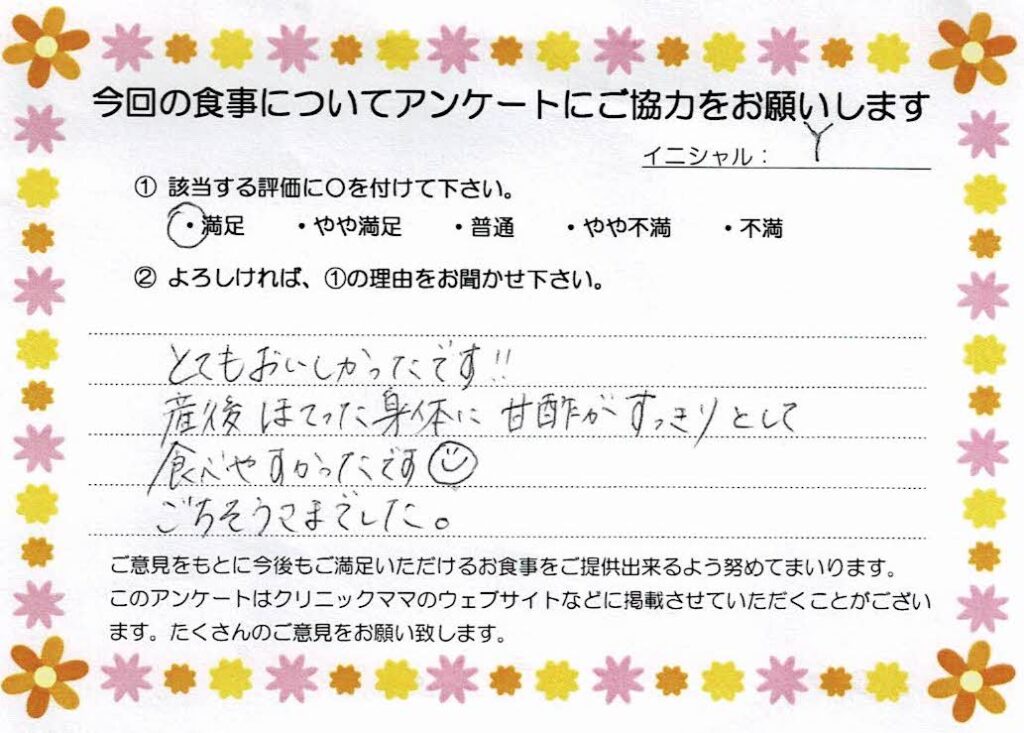 今回の食事についてアンケートにご協力をお願いします
イニシャル： Y
① 該当する評価に〇を付けて下さい。
・満足 ・やや満足 ・普通 ・やや不満 ・不満
② よろしければ、①の理由をお聞かせ下さい。
とてもおいしかったです!!
産後ほてった身体に甘酢がすっきりとして
食べやすかったです☺
ごちそうさまでした。
ご意見をもとに今後もご満足いただけるお食事をご提供出来るよう努めてまいります。
このアンケートはクリニックママのウェブサイトなどに掲載させていただくことがござい
ます。たくさんのご意見をお願い致します。